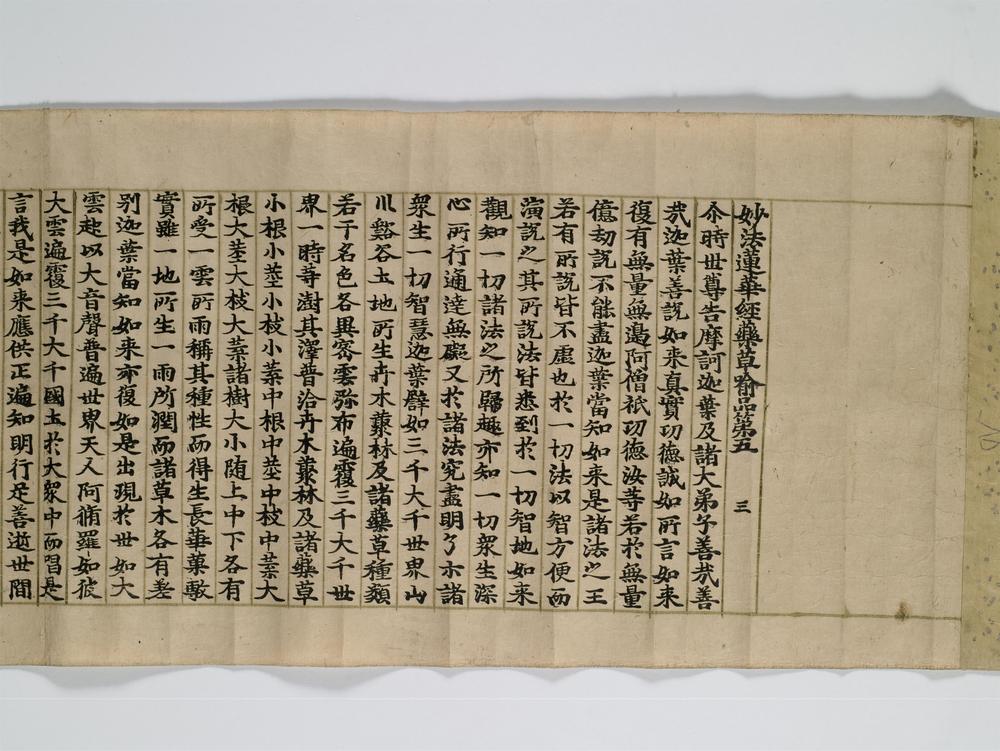 妙法蓮華經藥草喻品第五 三
尒時世尊告摩訶迦葉及諸大弟子善㢤善
㢤迦葉善說如来真實功德誠如所言如来
復有無量無邊阿僧祇功德汝等若於無量
億劫說不能盡迦葉當知如来是諸法之王
若有所說皆不虛也於一切法以智方便而
演說之其所說法皆悉到於一切智地如来
觀知一切諸法之所歸趣亦知一切衆生深
心所行通達無礙又於諸法究盡明了示諸
衆生一切智慧迦葉譬如三千大千世界山
川谿谷土地所生卉木藂林及諸藥草種類
若干名色各異密雲弥布遍覆三千大千世
界一時等澍其澤普洽卉木藂林及諸藥草
小根小莖小枝小葉中根中莖中枝中葉大
根大莖大枝大葉諸樹大小随上中下各有
所受一雲所雨稱其種性而得生長華菓敷
實雖一地所生一雨所潤而諸草木各有差
別迦葉當知如来亦復如是出現於世如大
雲起以大音聲普遍世界天人阿脩羅如彼
大雲遍覆三千大千國土於大衆中而唱是
言我是如来應供正遍知明行足善逝世間